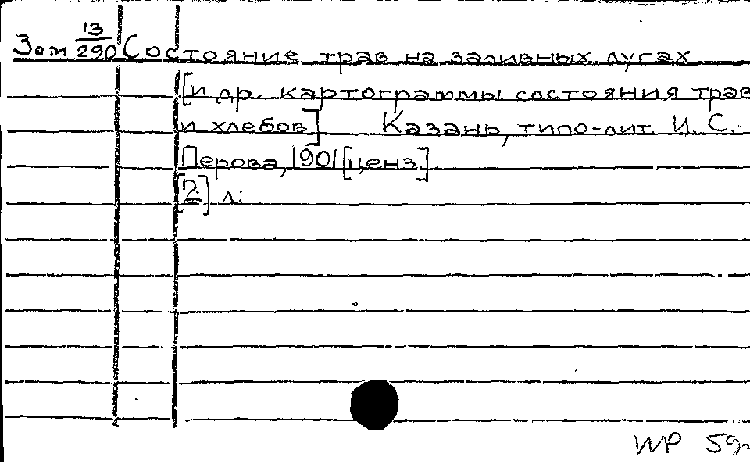 Зам 13/290 Состояние трав на заливных лугах
[и др. картограммы состояния трав
и хлебов] Казань, типо-лит. И. С.
Перова, 1901 [ценз.]
[2] л.
WP